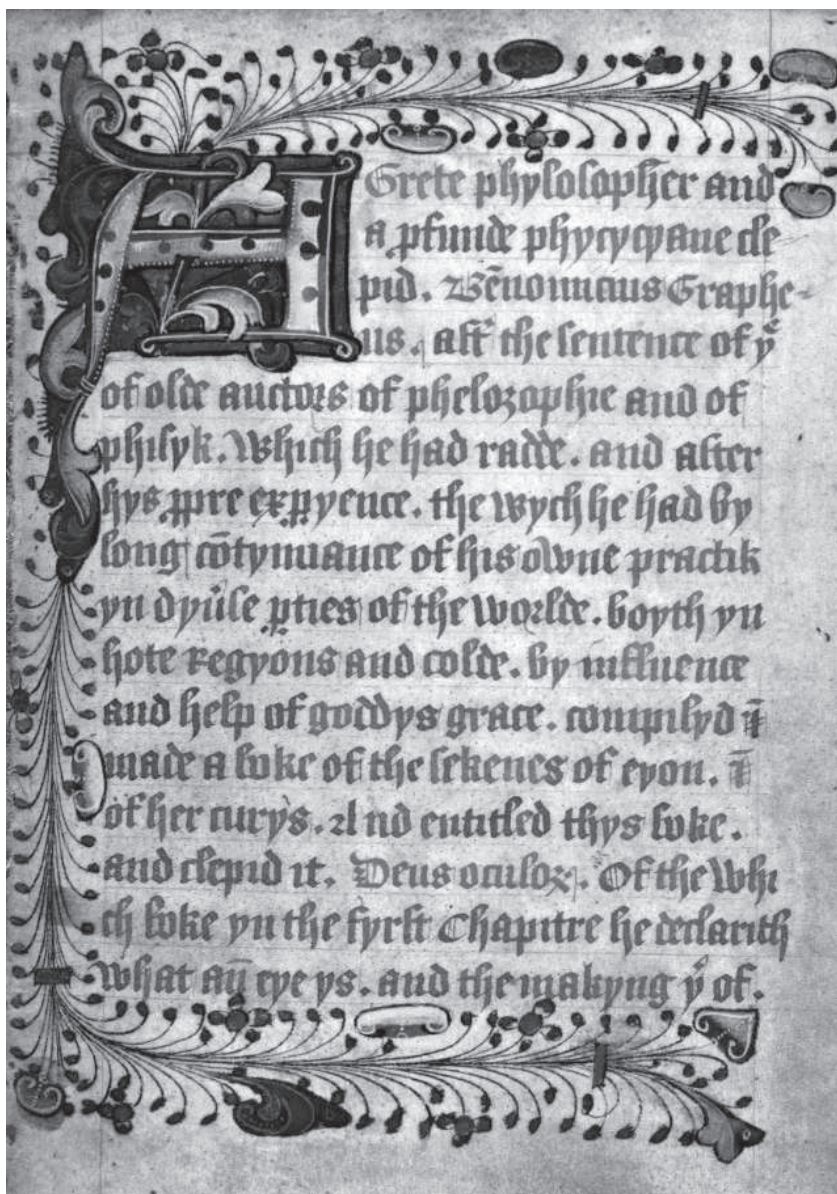 A Grete phylosopher and
a pfunde phycycyane cle
pid. Bēnomicius Graphe-
us. aft̃ the sentence of yͤ
of olde auctors of phelozophie and of
phisyk. Which he had radde. and after
hys ꝓpre exꝑyence. the wych he had by
long cōtynuance of his owne practik
yn dyũse ꝑties of the worlde. boyth yn
hote regyons and colde. by influence
and help of goddys grace. compilyd ⁊̄
made a boke of the sekenes of eyon. ⁊̄
of her curys. And entitled thys boke.
and clepid it. Deus oculoꝝ. Of the whi
ch boke yn the fyrst Chapitre he declarith
what an̄ eye ys. and the makyng ẏ of.